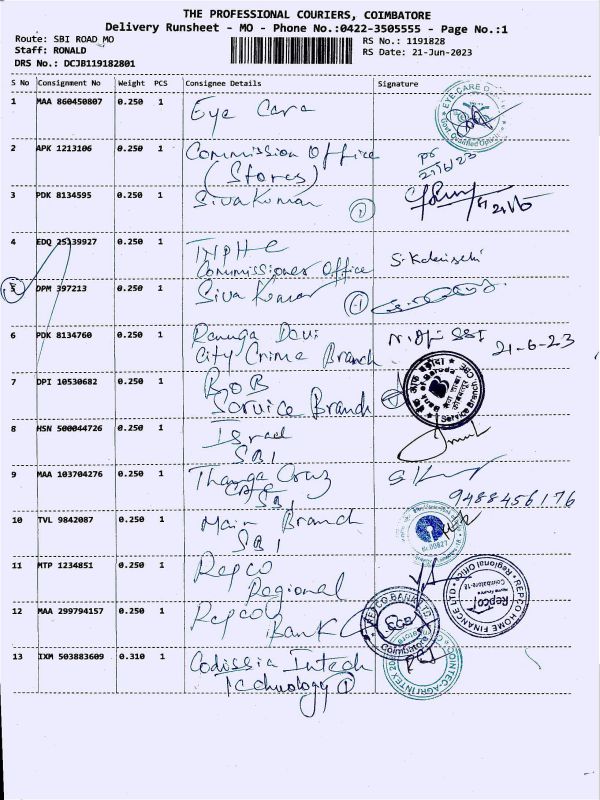 THE PROFESSIONAL COURIERS, COIMBATORE
Delivery Runsheet - MO - Phone No.:0422-3505555 - Page No.:1
Route: SBI ROAD MO
RS No.: 1191828
Staff: RONALD
RS Date: 21-Jun-2023
DRS No.: DCJB119182801
S No Consignment No Weight PCS Consignee Details Signature
1 MAA 860450807 0.250 1 Eye Care
EYE-CARE
2 APK 1213106 0.250 1 Commission Office
(Stores)
21/6/23
3 PDK 8134595 0.250 1 Siva Kumar
4 EDQ 25139927 0.250 1 TNPHC
Commissioner Office
5 DPM 397213 0.250 1 Siva Kumar
6 PDK 8134760 0.250 1 Renuga Devi
City Crime Branch
21-6-23
7 DPI 10530682 0.250 1 BOB
Service Branch
Bank of Baroda
Service Branch
8 HSN 500044726 0.250 1 Israel
SBI
9 MAA 103704276 0.250 1 Thanga Cruz
SBI
9488456176
10 TVL 9842087 0.250 1 Main Branch
SBI
11 MTP 1234851 0.250 1 Repco
Regional
REPCO HOME FINANCE LTD
Regional Office
Repco
Coimbatore-18
12 MAA 299794157 0.250 1 Repco
Bank
REPCO BANK LTD
Coimbatore
13 IXM 503883609 0.310 1 Codissia Intech
Technology 1